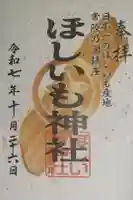 奉拝
日本一のほしいも産地
常陸乃国鎮座
ほしいも神社
令和七年十月二十六日